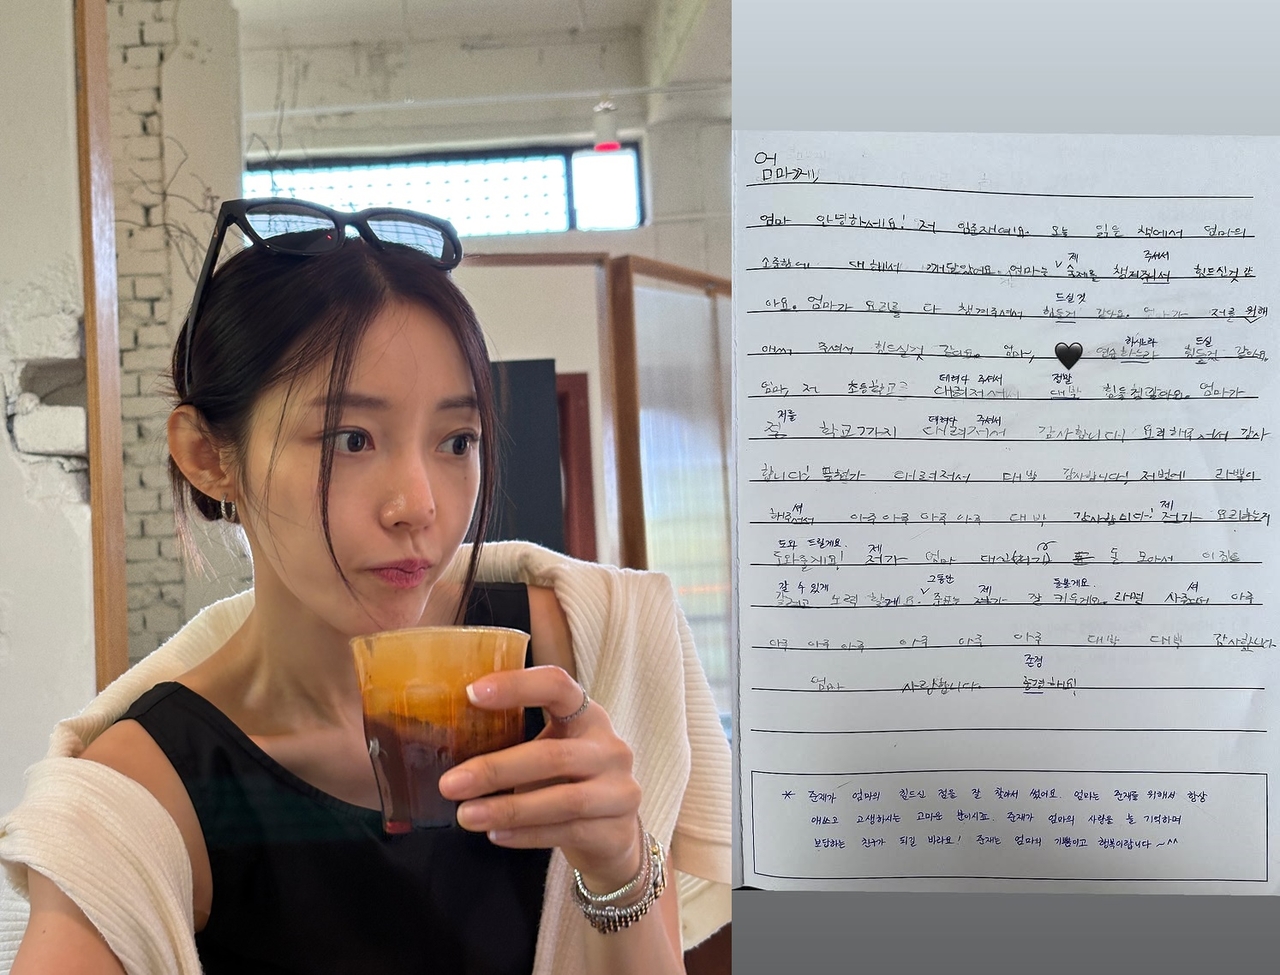 엄마께,
엄마 안녕하세요! 저 임준재예요. 오늘 읽은 책에서 엄마의
소중함에 대해서 깨달았어요. 엄마는 제 숙제를 챙겨주셔서 힘드신것 같
아요. 엄마가 요리를 다 챙겨주셔서 힘든거 드실것 같아요. 엄마가 저를 위해
애써 주셔서 힘드신것 같아요. 엄마, 연습하느라 하시느라 힘들것 드실 같아요.
엄마, 저 초등학교 대려저서 데려다 주셔서 대박 정말 힘들 엄마가
절 저를 학교까지 대려저서 데려다 주셔서 감사합니다! 요리해주셔서 감사
합니다! 대려저서 대박 감사합니다! 저번에
해주셔서 아주 아주 아주 아주 대박 감사합니다! 저가 제 요리하는거
도와줄게요! 도와 드릴게요. 저가 제 엄마 돈 모아서
갈 수 있게 노력 할게요. 그동안 준표는 저가 제 잘 키울게요. 돌볼게요. 라면 사주셔서 아주
아주 아주 아주 아주 아주 아주 대박 대박 감사합니다.
엄마 사랑합니다. 존경해요!
존경
* 준재가 엄마의 힘드신 점을 잘 찾아서 썼어요. 엄마는 준재를 위해서 항상
애쓰고 고생하시는 고마운 분이시죠. 준재가 엄마의 사랑을 늘 기억하며
보답하는 친구가 되길 바라요! 준재는 엄마의 기쁨이고 행복이랍니다 ~^^